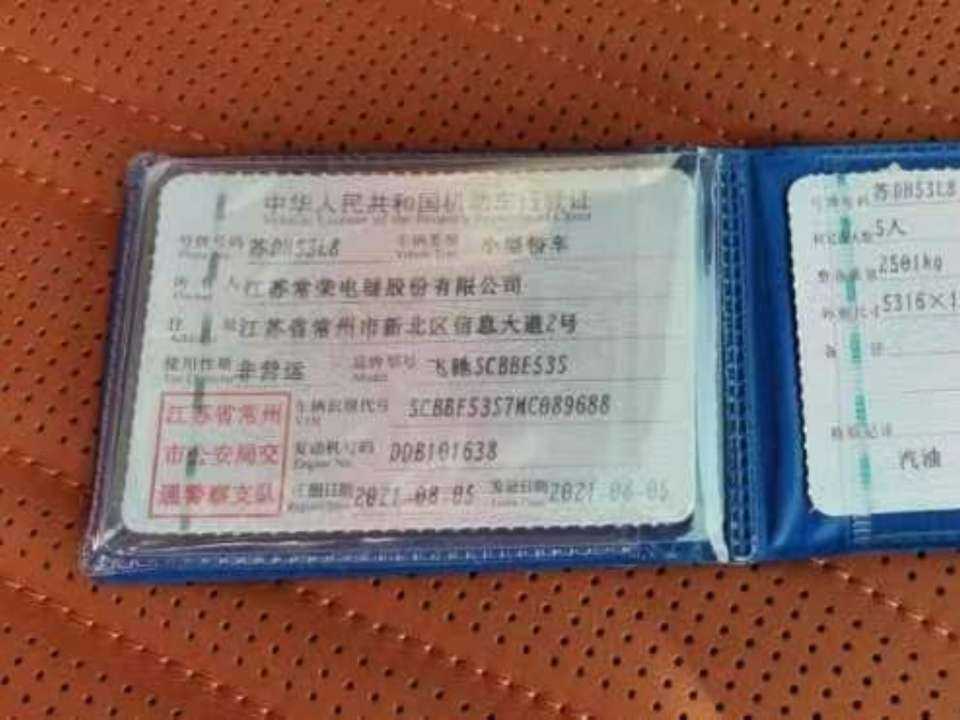 中华人民共和国机动车行驶证
号牌号码 苏DH53L8 车辆类型 小型轿车
所有人 江苏常荣电器股份有限公司
住址 江苏省常州市新北区信息大道2号
使用性质 非营运 品牌型号 飞驰SCBBE53S
Model
江苏省常州
市公安局交
通警察支队
车辆识别代号 SCBBE53S7MC089688
VIN
发动机号码 DDB101638
Engine No.
注册日期 2021-08-05 发证日期 2021-08-05
号牌号码 苏DH53L8
核定载人数 5人
整备质量 2501kg
外廓尺寸 5316×1
备注
检验记录
汽油